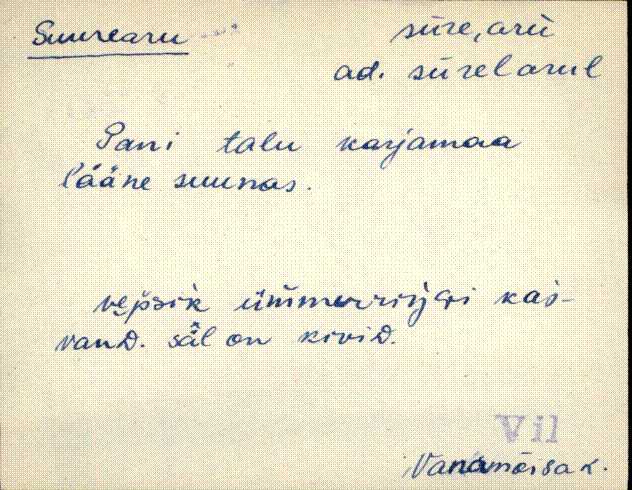 Suurearu
sūre, arū
ad. sūrel arul
Pani talu karjamaa
lääne suunas.
vepsik ümmerriŋŋi kas-
vanD. säl on kiviD.
Vil
Vanamõisa k.